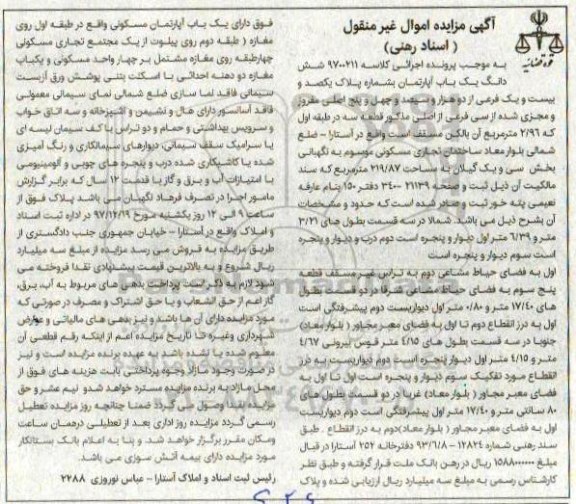 آگهی مزایده اموال غیر منقول
( اسناد رهنی)
قوه قضائیه
به موجب پرونده اجرائی کلاسه ۹۷۰۰۲۱۱ شش
دانگ یک باب آپارتمان بشماره پلاک یکصد و
بیست و یک فرعی از دو هزار و سیصد و چهل و پنج اصلی مفروز
و مجزی شده از سی فرعی از اصلی مذکور قطعه سه در طبقه اول
۲/۹۶ مترمربع آن بالکن مسقف است واقع در آستارا - ضلع
شمالی بلوار معاد ساختمان تجاری مسکونی موسوم به نگهبانی
بخش سی و یک گیلان به مساحت ۲۱۹/۸۷ مترمربع که سند
مالکیت آن ذیل ثبت و صفحه ۲۱۱۳۹ ۳۴۰۰ دفتر ۱۵۰ بنام عارفه
نعیمی پته خور ثبت و صادر شده است که حدود و مشخصات
آن بشرح ذیل می باشد. شمالا در سه قسمت بطول های ۳/۲۱
متر و ۶/۳۹ متر اول دیوار و پنجره است دوم درب و دیوار و پنجره
است سوم دیوار و پنجره است
اول به فضای حیاط مشاعی دوم به تراس غیر مسقف قطعه
پنج سوم به فضای حیاط مشاعی شرقا در دو قسمت بطول
های ۱۷/۴۰ متر و ۰/۸۰ متر اول دیواریست دوم پیشرفتگی است
اول به درز انقطاع دوم تا اول به فضای معبر مجاور ( بلوار معاد)
جنوبا در سه قسمت بطول های ۴/۱۵ متر قوس بیرونی ۴/۶۷
متر و ۴/۱۵ متر اول دیوار پنجره است دوم دیواریست به درز
انقطاع مورد تفکیک سوم دیوار و پنجره است اول تا اول به
فضای معبر مجاور ( بلوار معاد) غربا در دو قسمت بطول های
۸۰ سانتی متر و ۱۷/۴۰ متر اول پیشرفتگی است دوم دیواریست
اول به فضای معبر مجاور ( بلوار معاد)دوم به درز انقطاع . طبق
سند رهنی شماره ۱۲۸۲۴ - ۹۳/۶/۸ دفترخانه ۲۵۲ آستارا در قبال
مبلغ ریال در رهن بانک ملت قرار گرفته و طبق نظر
کارشناس رسمی به مبلغ سه میلیارد ریال ارزیابی شده و پلاک
فوق دارای یک باب آپارتمان مسکونی واقع در طبقه اول روی
مغازه ( طبقه دوم روی پیلوت از یک مجتمع تجاری مسکونی
چهارطبقه روی مغازه مشتمل بر چهار واحد مسکونی و یکباب
مغازه دو دهنه احداثی با اسکلت بتنی پوشش ورق آزبست
سیمانی فاقد نما سازی ضلع شمالی نمای سیمانی معمولی
فاقد آسانسور دارای هال و نشیمن و آشپزخانه و سه اتاق خواب
و سرویس بهداشتی و حمام و دو تراس با کف سیمان لیسه ای
یا سرامیک سقف سیمانی، دیوارهای سیمانکاری و رنگ آمیزی
شده یا کاشیکاری شده درب و پنجره های چوبی و آلومینیومی
با امتیازات آب و برق و گاز با قدمت ۱۲ سال که برابر گزارش
مامور اجرا در تصرف فرهاد نگهبان می باشد پلاک فوق از
ساعت ۹ الی ۱۲ روز یکشنبه مورخ ۹۷/۱۲/۱۹ در اداره ثبت اسناد
و املاک واقع در آستارا - خیابان جمهوری جنب دادگستری از
طریق مزایده به فروش می رسد مزایده از مبلغ سه میلیارد
ریال شروع و به بالاترین قیمت پیشنهادی نقدا فروخته می
شود لازم به ذکر است پرداخت بدهی های مربوط به آب، برق،
گاز اعم از حق انشعاب و یا حق اشتراک و مصرف در صورتی که
مورد مزایده دارای آن ها باشد و نیز بدهی های مالیاتی و عوارض
شهرداری وغیره تا تاریخ مزایده اعم از اینکه رقم قطعی آن
معلوم شده یا نشده باشد به عهده برنده مزایده است و نیز
در صورت وجود مازاد وجوه پرداختی بابت هزینه های فوق از
محل مازاد به برنده مزایده مسترد خواهد شد و نیم عشر و حق
مزایده نقدا وصول می گردد ضمنا چنانچه روز مزایده تعطیل
رسمی گردد مزایده روز اداری بعد از تعطیلی درهمان ساعت
ومکان مقرر برگزار خواهد شد. و بنا به اعلام بانک بستانکار
مورد مزایده دارای بیمه آتش سوزی می باشد.
رئیس ثبت اسناد و املاک آستارا - عباس نوروزی ۲۲۸۸